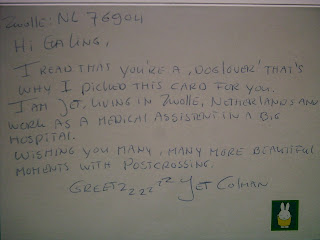 Zwolle: NL 76904
Hi GaLing,
I read that you're a 'doglover' that's
why I picked this card for you.
I am Jet, living in Zwolle, Netherlands and
work as a medical assistent in a big
hospital.
Wishing you many, many more beautiful
moments with Postcrossing.
Greetzzzzzz Jet Colman